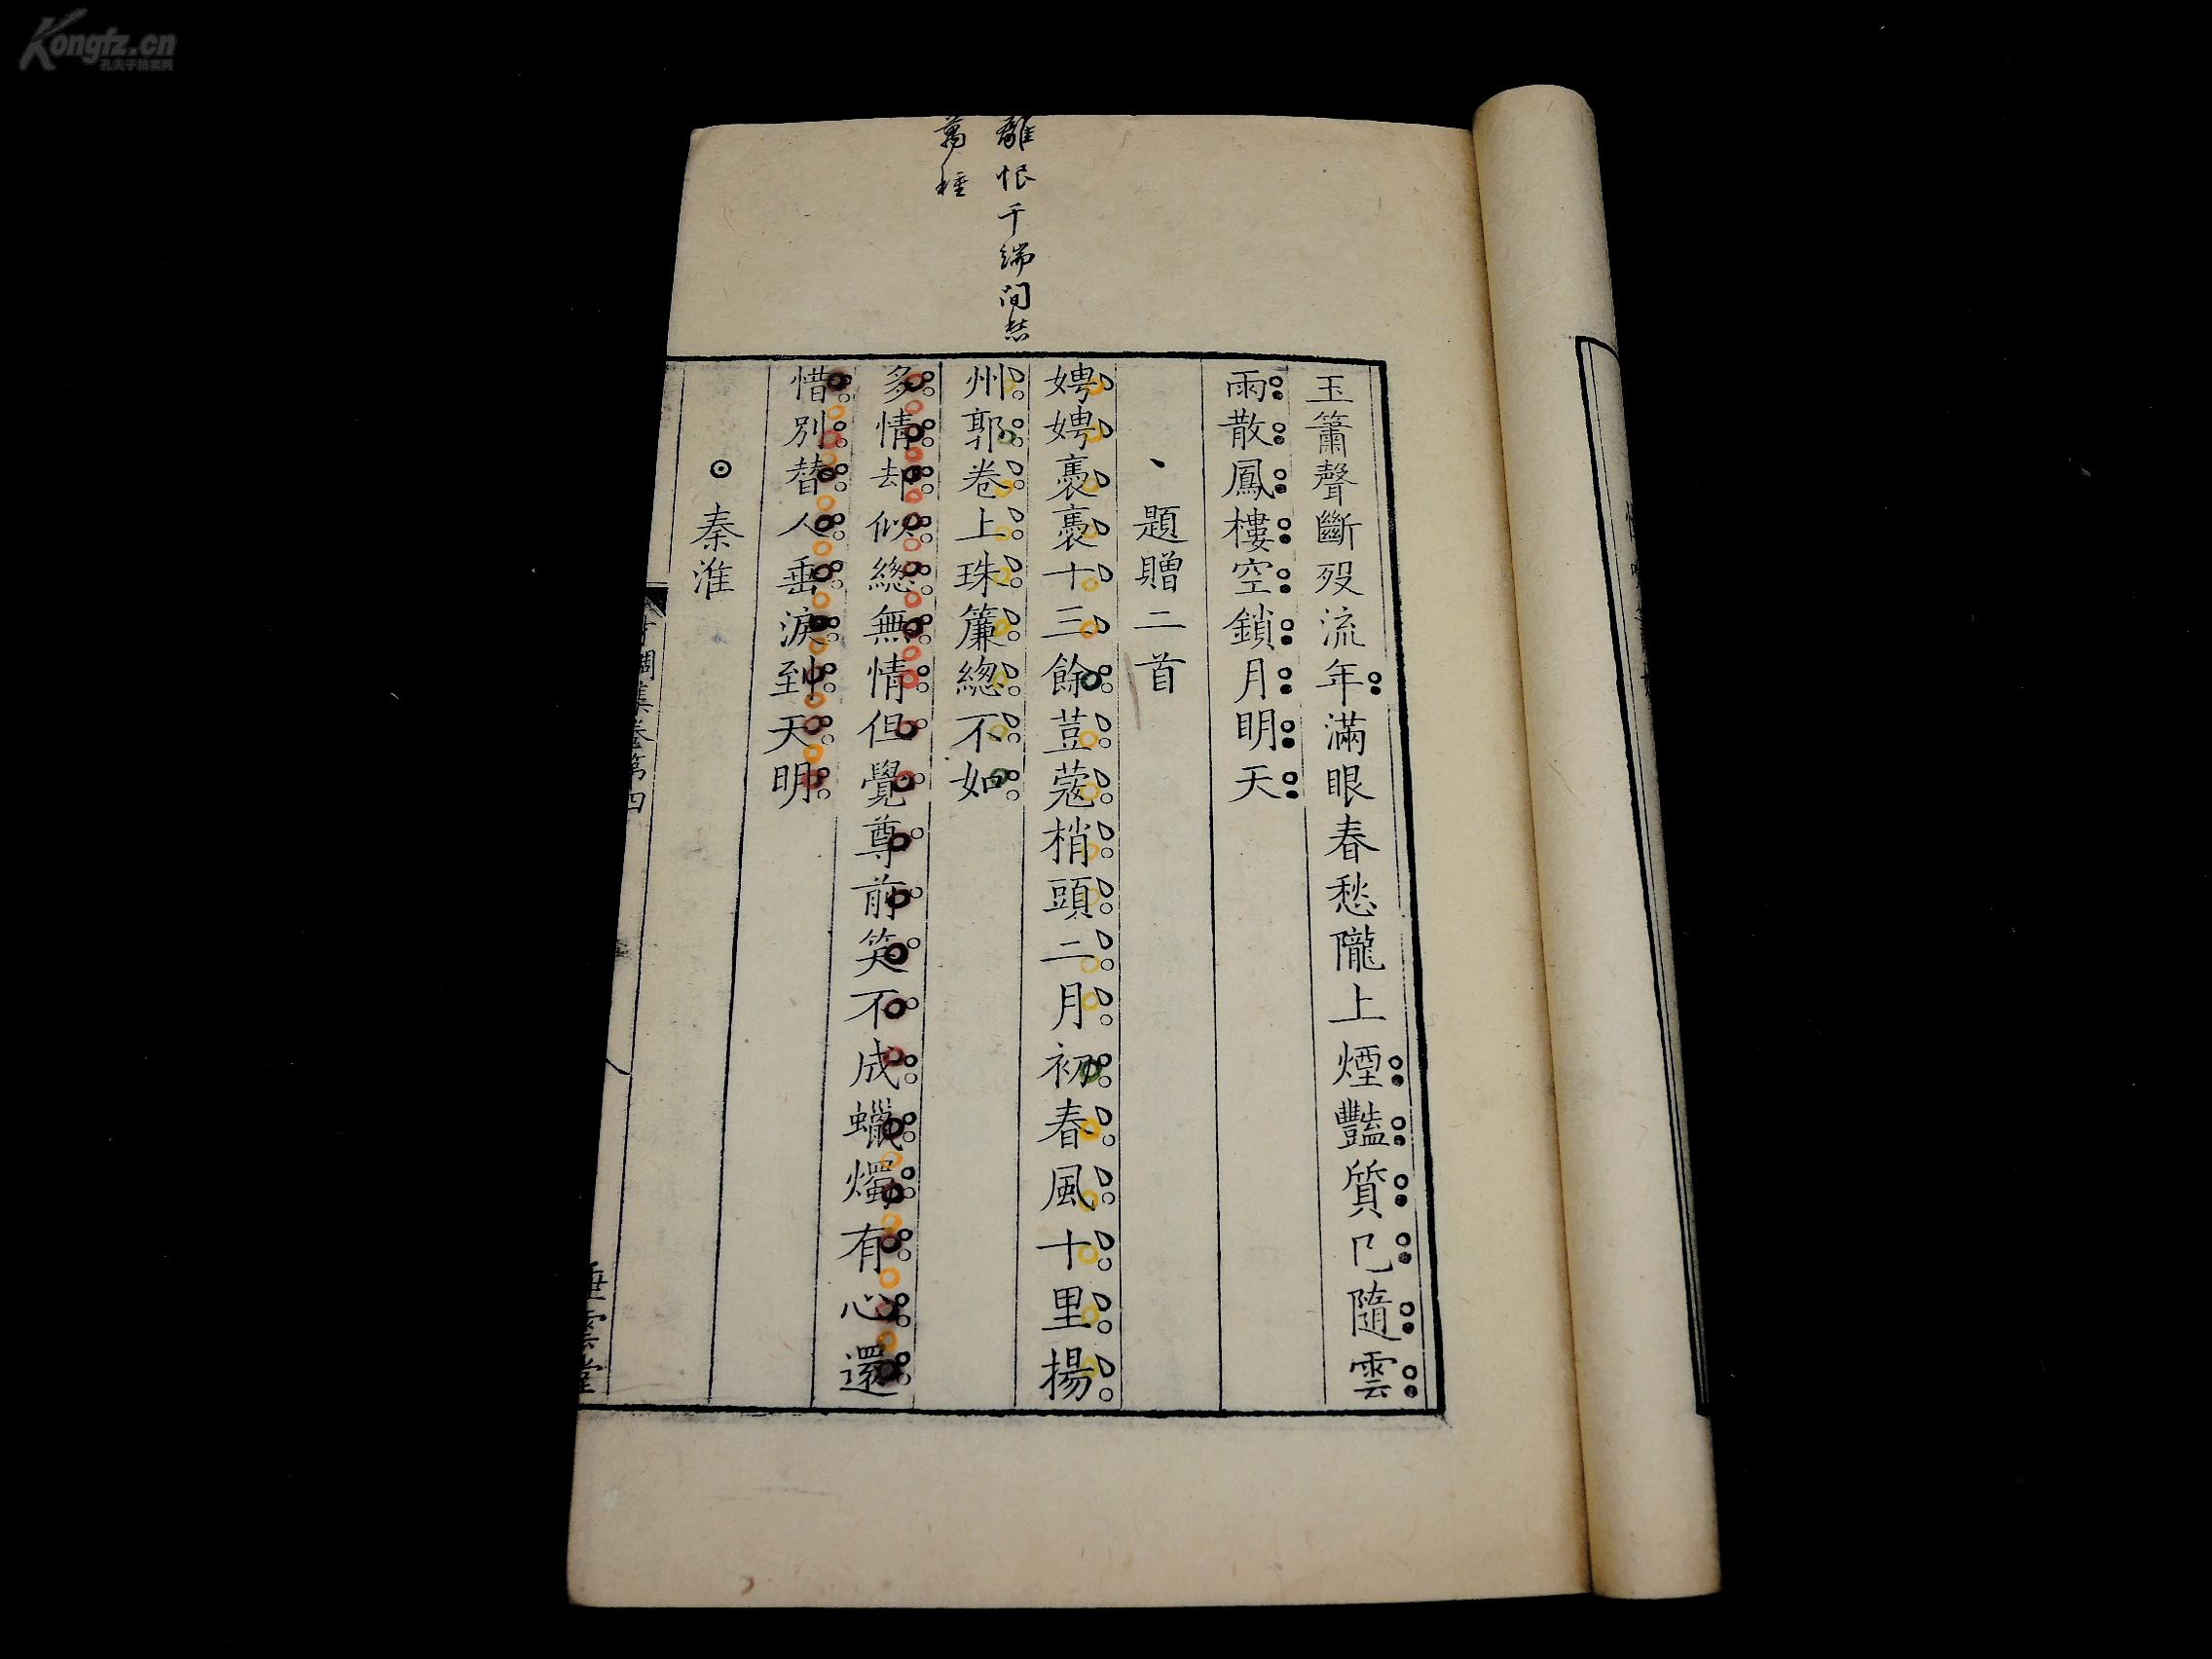 離恨千端閒愁
萬種
玉簫聲斷歿流年滿眼春愁隴上煙豔質已隨雲
雨散鳳樓空鎖月明天
題贈二首
娉娉裊裊十三餘荳蔻梢頭二月初春風十里揚
州郭卷上珠簾總不如
多情却似總無情但覺尊前笑不成蠟燭有心還
惜別替人垂淚到天明
秦淮
才調集卷第四
垂雲堂
Kongfz.cn
孔夫子拍卖网